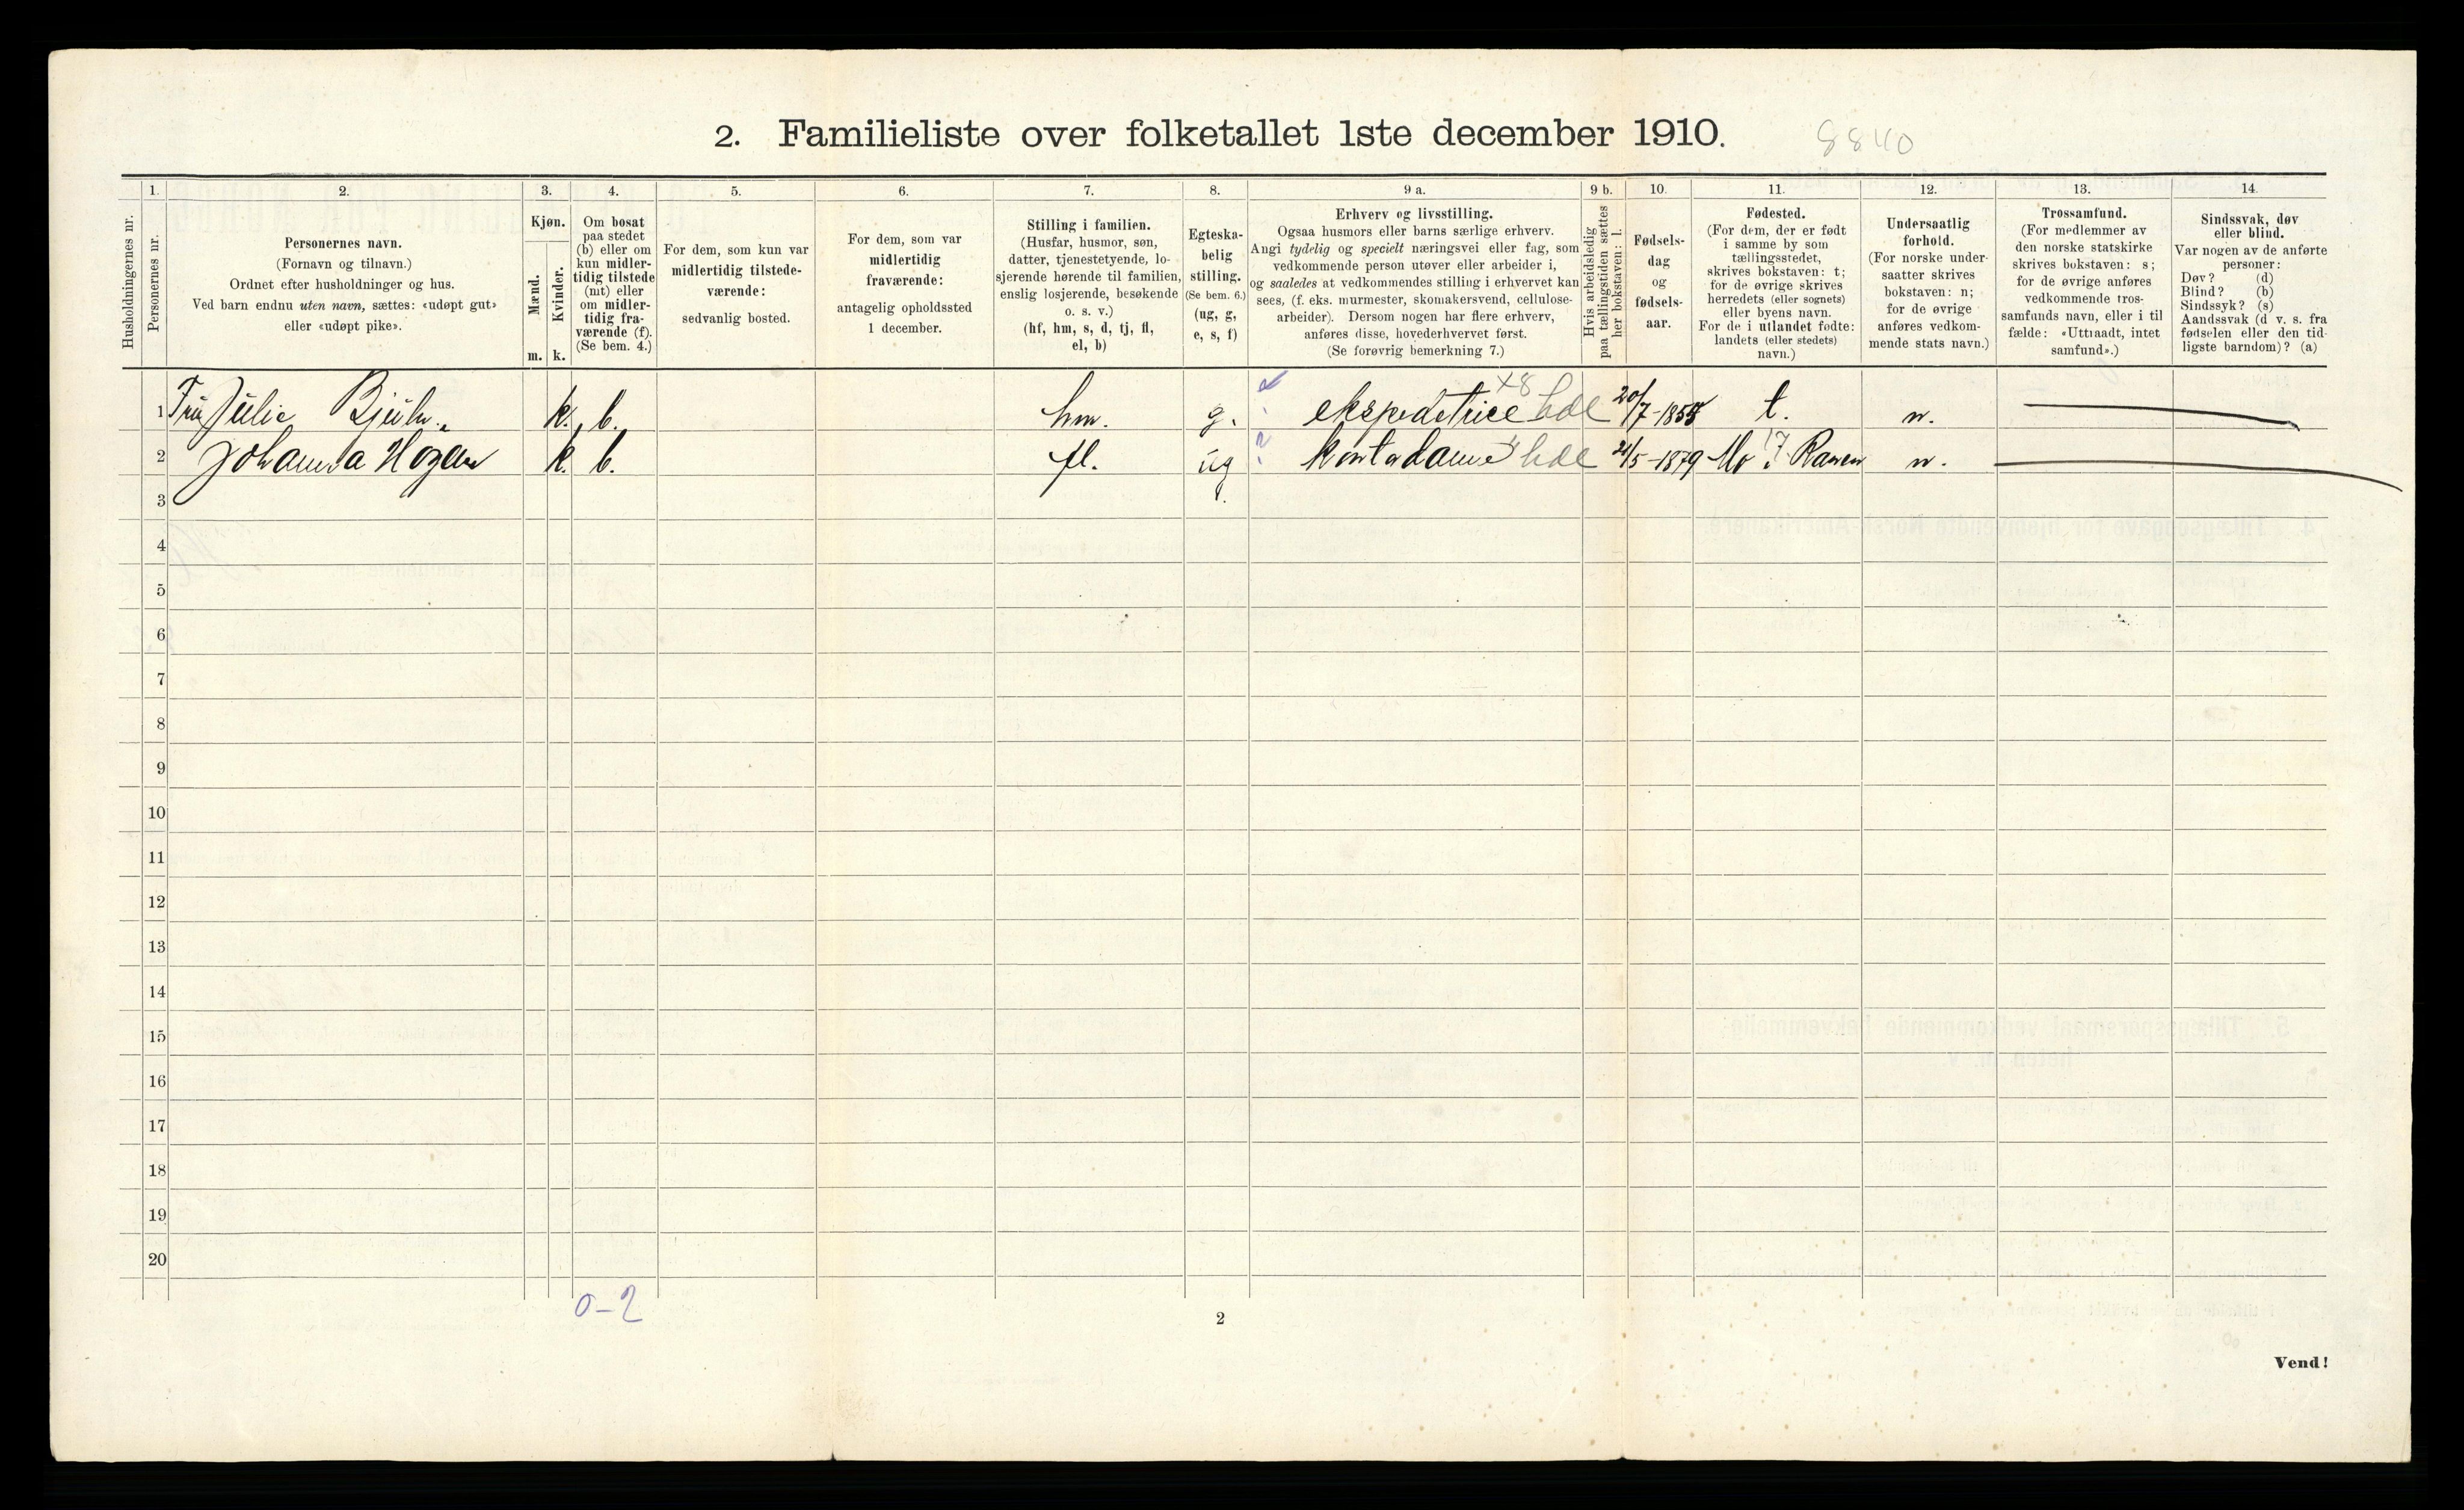 2. Familieliste over folketallet 1ste december 1910.
8840
Husholdningernes nr.
1.
Personernes nr.
2.
Personernes navn.
(Fornavn og tilnavn.)
Ordnet efter husholdninger og hus.
Ved barn endnu uten navn, sættes: «udøpt gut»
eller «udøpt pike».
3.
Kjøn.
Mænd.
Kvinder.
m. k.
4.
Om bosat
paa stedet
(b) eller om
kun midler-
tidig tilstede
(mt) eller
om midler-
tidig fra-
værende (f).
(Se bem. 4.)
5.
For dem, som kun var
midlertidig tilstede-
værende:
sedvanlig bosted.
6.
For dem, som var
midlertidig
fraværende:
antagelig opholdssted
1 december.
7.
Stilling i familien.
(Husfar, husmor, søn,
datter, tjenestetyende, lo-
sjerende hørende til familien,
enslig losjerende, besøkende
o. s. v.)
(hf, hm, s, d, tj, fl,
el, b)
8.
Egteska-
belig
stilling.
(Se bem. 6.)
(ug, g,
e, s, f)
9 a.
Erhverv og livsstilling.
Ogsaa husmors eller barns særlige erhverv.
Angi tydelig og specielt næringsvei eller fag, som
vedkommende person utøver eller arbeider i,
og saaledes at vedkommendes stilling i erhvervet kan
sees, (f. eks. murmester, skomakersvend, cellulose-
arbeider). Dersom nogen har flere erhverv,
anføres disse, hovederhvervet først.
(Se forøvrig bemerkning 7.)
9 b.
Hvis arbeidsledig
paa tællingstiden sættes
her bokstaven: l.
10.
Fødsels-
dag
og
fødsels-
aar.
11.
Fødested.
(For dem, der er født
i samme by som
tællingsstedet,
skrives bokstaven: t;
for de øvrige skrives
herredets (eller sognets)
eller byens navn.
For de i utlandet fødte:
landets (eller stedets)
navn.)
12.
Undersaatlig
forhold.
(For norske under-
saatter skrives
bokstaven: n;
for de øvrige
anføres vedkom-
mende stats navn.)
13.
Trossamfund.
(For medlemmer av
den norske statskirke
skrives bokstaven: s;
for de øvrige anføres
vedkommende tros-
samfunds navn, eller i til
fælde: «Uttraadt, intet
samfund».)
14.
Sindssvak, døv
eller blind.
Var nogen av de anførte
personer:
Døv? (d)
Blind? (b)
Sindssyk? (s)
Aandssvak (d v. s. fra
fødselen eller den tid-
ligste barndom)? (a)
1 Fru Julie k. b. hm. g. ekspeditrice x8 hdl 20/7-1855 t. n.
2 Johanna Hogan k. b. fl. ug. Kontordame hdl 21/5-1879 Mo i Ranen n.
3
4
5
6
7
8
9
10
11
12
13
14
15
16
17
18
19
20
0-2
2
Vend!